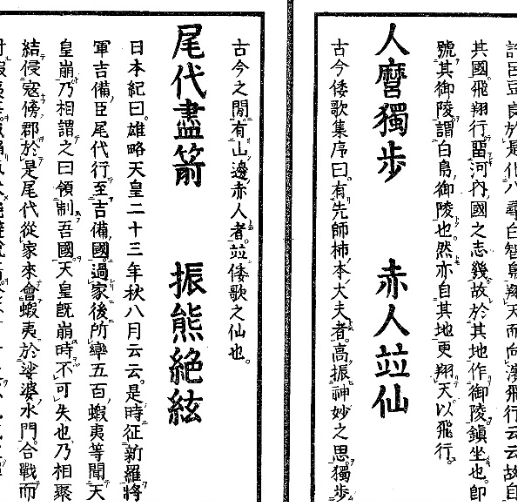 許呂豆良於是化八尋白智鳥翔天而向濱飛行云云故自
其國飛翔行畱河內國之志幾故於其地作御陵鎮坐也卽
號其御陵謂白鳥御陵也。然亦自其地更翔天以飛行。
人麿獨步　赤人竝仙
古今倭歌集序曰。有先師柿本大夫者。高振神妙之思獨步
古今之閒有山邊赤人者。竝倭歌之仙也。
尾代盡箭　振熊絕絃
日本紀曰。雄略天皇二十三年秋八月云云。是時征新羅將
軍吉備臣尾代行至吉備國過家後所率五百蝦夷等聞天
皇崩乃相謂之曰領制吾國天皇旣崩時不可失也乃相聚
結侵寇傍郡於是尾代從家來會蝦夷於娑婆水門合戰而